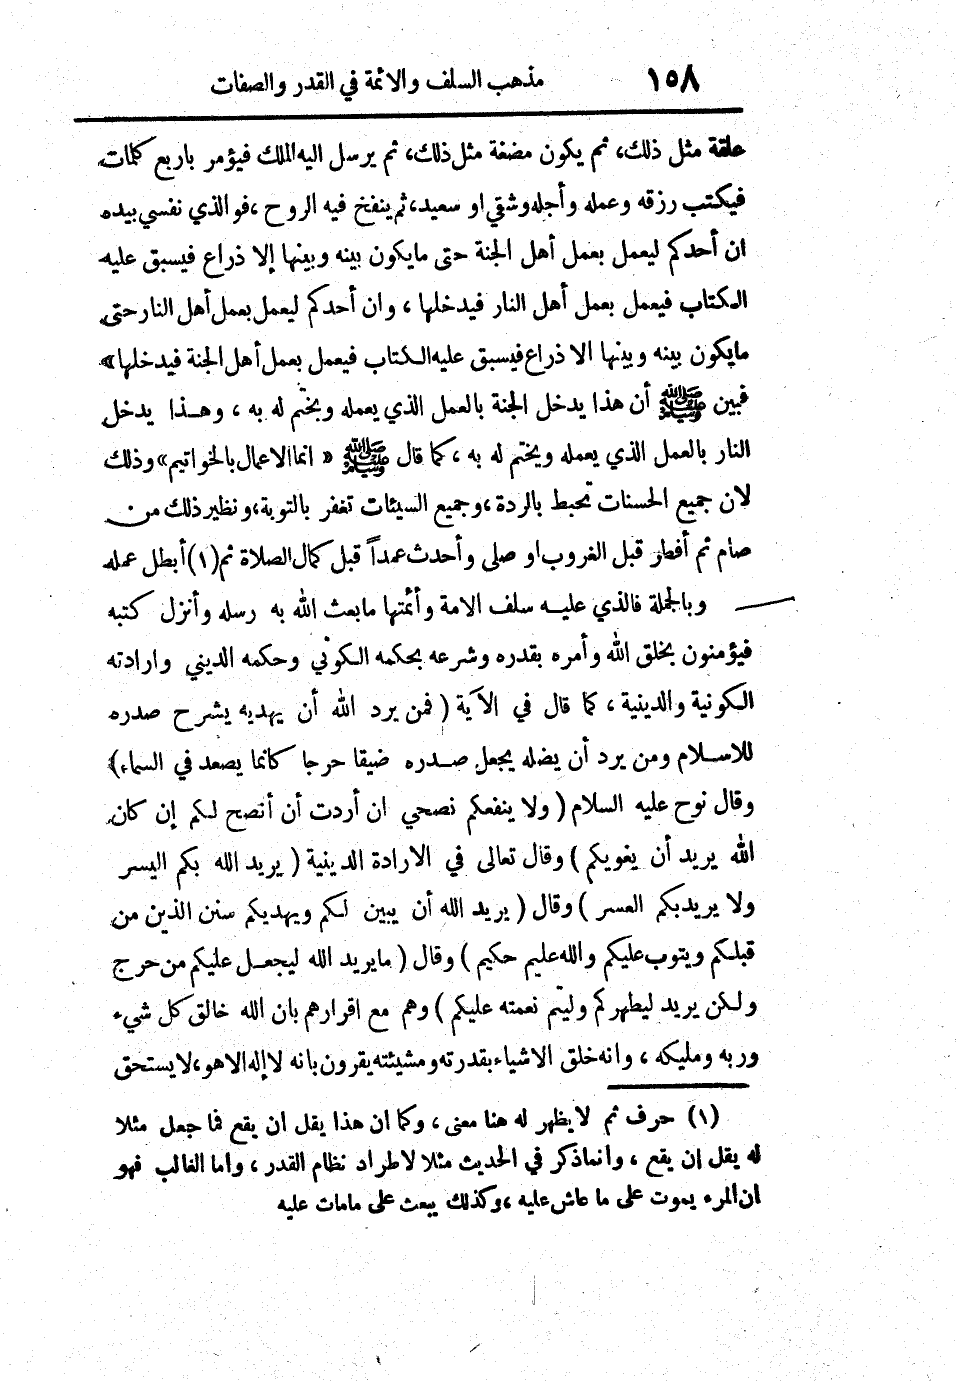 ١٥٨ مذهب السلف والائمة في القدر والصفات
علقة مثل ذلك، ثم يكون مضغة مثل ذلك، ثم يرسل اليه الملك فيؤمر باربع كلمات
فيكتب رزقه وعمله وأجله وشقي او سعيد، ثم ينفخ فيه الروح ، فو الذي نفسي بيده
ان أحدكم ليعمل بعمل أهل الجنة حتى مايكون بينه وبينها إلا ذراع فيسبق عليه
الكتاب فيعمل بعمل أهل النار فيدخلها ، وان أحدكم ليعمل بعمل أهل النار حتى
مايكون بينه وبينها الا ذراع فيسبق عليه الكتاب فيعمل بعمل أهل الجنة فيدخلها»
فبين ﷺ أن هذا يدخل الجنة بالعمل الذي يعمله ويختم له به ، وهـذا يدخل
النار بالعمل الذي يعمله ويختم له به ، كما قال ﷺ « انما الاعمال بالخواتيم» وذلك
لان جميع الحسنات تحبط بالردة ، وجميع السيئات تغفر بالتوبة، ونظير ذلك من
صام ثم أفطر قبل الغروب او صلى وأحدث عمداً قبل كمال الصلاة ثم(١) أبطل عمله
وبالجملة فالذي عليـه سلف الامة وأئمتها مابعث الله به رسله وأنزل كتبه
فيؤمنون بخلق الله وأمره بقدره وشرعه بحكمه الكوني وحكمه الديني وارادته
الكونية والدينية ، كما قال في الآية ( فمن يرد الله أن يهديه يشرح صدره
للاسـلام ومن يرد أن يضله يجعل صـدره ضيقا حرجا كانما يصعد في السماء)
وقال نوح عليه السلام ( ولا ينفعكم نصحي ان أردت أن أنصح لكم إن كان
الله يريد أن يغويكم ) وقال تعالى في الارادة الدينية ( يريد الله بكم اليسر
ولا يريد بكم العسر ) وقال ( يريد الله أن يبين لكم ويهديكم سنن الذين من
قبلكم ويتوب عليكم والله عليم حكيم ) وقال ( مايريد الله ليجعـل عليكم من حرج
ولكن يريد ليطهركم وليتم نعمته عليكم ) وهم مع اقرارهم بان الله خالق كل شيء
وربه ومليكه ، وانه خلق الاشياء بقدرته ومشيئته يقرون بانه لا إله الا هو، لا يستحق
(١) حرف ثم لايظهر له هنا معنى ، وكما ان هذا يقل ان يقع فما جعل مثلا
له يقل ان يقع ، وانما ذكر في الحديث مثلا لاطراد نظام القدر ، واما الغالب فهو
ان المرء يموت على ما عاش عليه ، وكذلك يبعث على مامات عليه